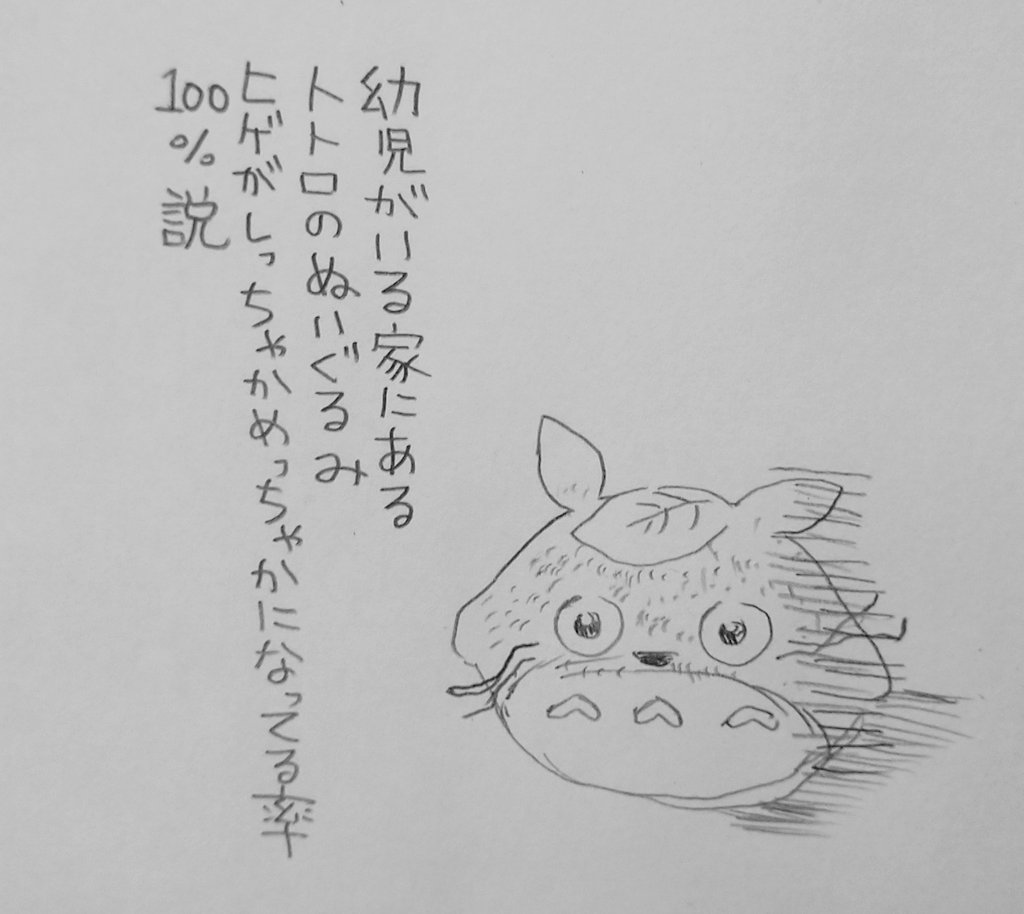 幼児がいる家にある
トトロのぬいぐるみ
ヒゲがしっちゃかめっちゃかになってる率
100%説